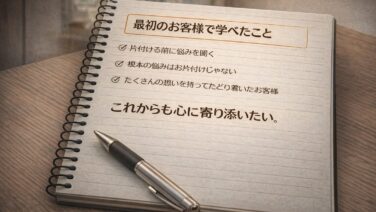 最初のお客様で学べたこと
片付ける前に悩みを聞く
根本の悩みはお片付けじゃない
たくさんの想いを持ってたどり着いたお客様
これからも心に寄り添いたい。